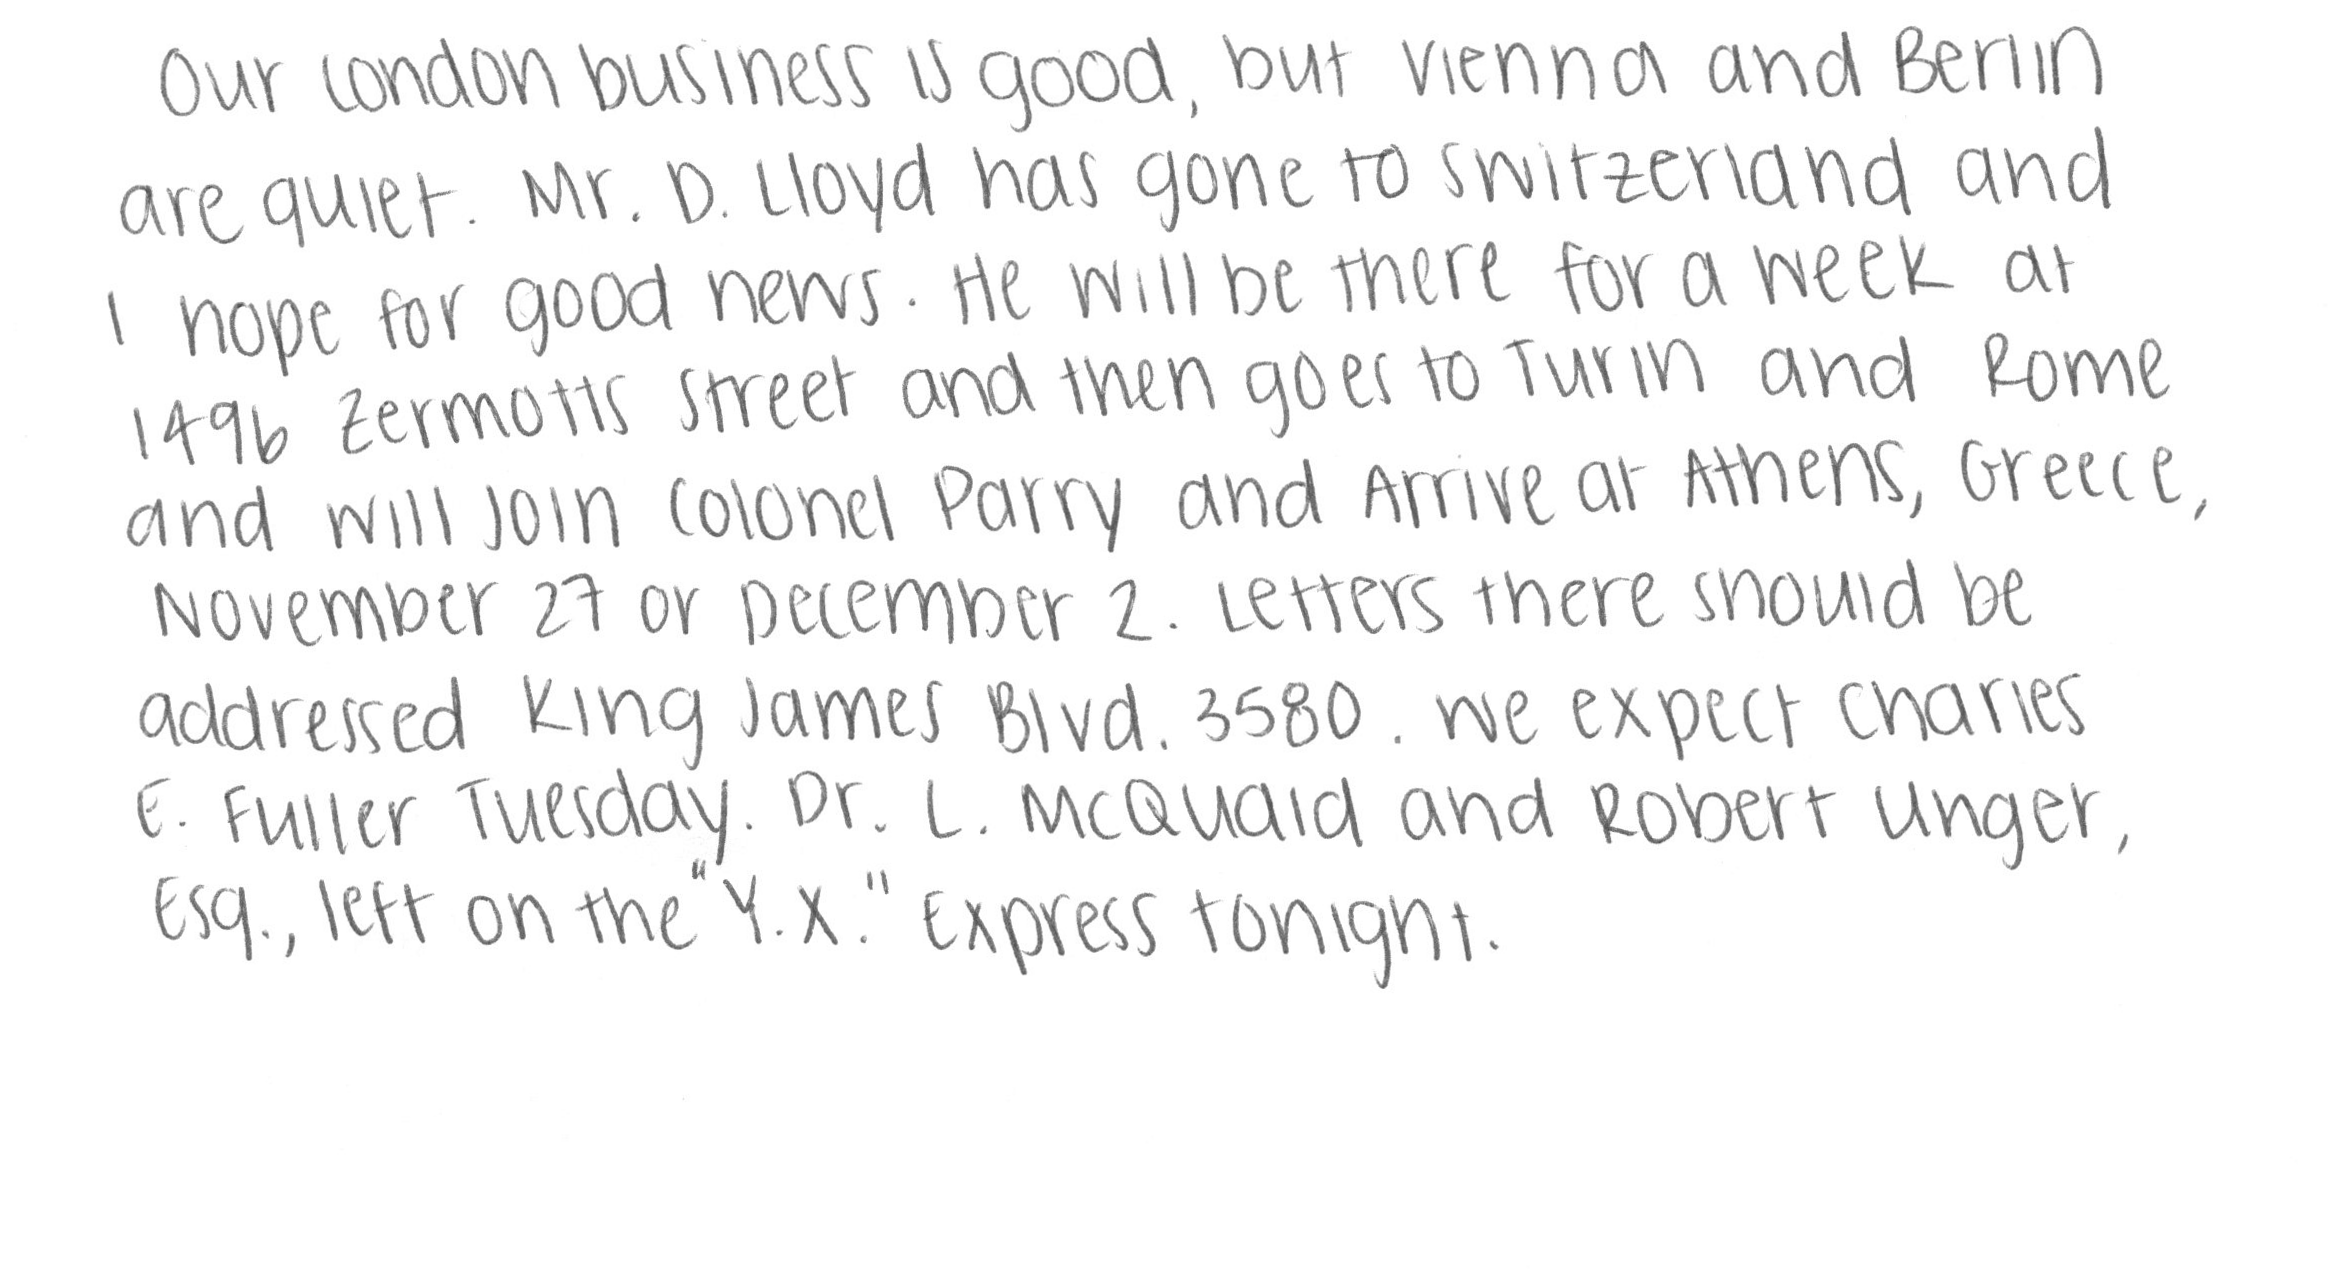 Our London business is good, but Vienna and Berlin
are quiet. Mr. D. Lloyd has gone to Switzerland and
I hope for good news. He will be there for a week at
1496 Zermotts Street and then goes to Turin and Rome
and will join Colonel Parry and Arrive at Athens, Greece,
November 27 or December 2. Letters there should be
addressed King James Blvd. 3580. We expect Charles
E. Fuller Tuesday. Dr. L. McQuaid and Robert Unger,
Esq., left on the "Y.X." Express tonight.